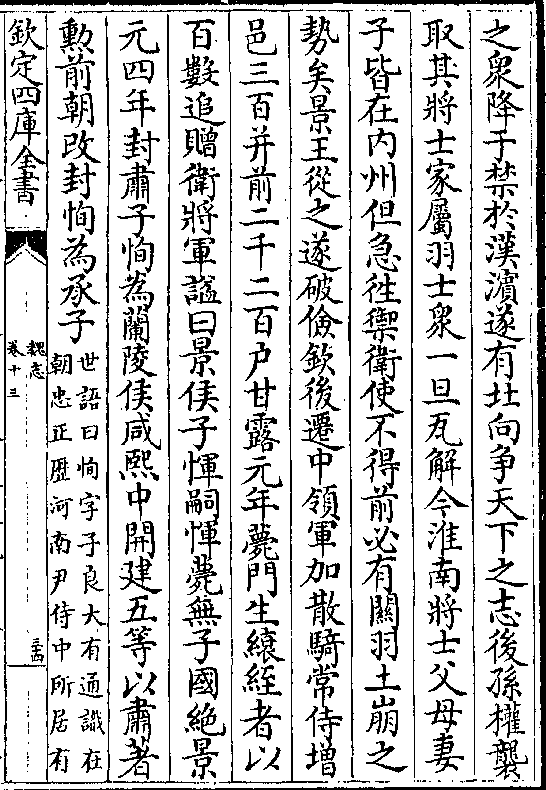 之衆降于禁於漢濱遂有北向争天下之志後孫權襲
取其將士家屬羽士衆一旦瓦解今淮南將士父母妻
子皆在内州但急徃禦衛使不得前必有關羽土崩之
勢矣景王從之遂破儉欽後遷中領軍加散騎常侍增
邑三百并前二千二百户甘露元年薨門生縗絰者以
百數追贈衛將軍諡曰景侯子惲嗣惲薨無子國絶景
元四年封肅子恂為蘭陵侯咸熙中開建五等以肅著
勲前朝改封恂為承子
世語曰恂字子良大有通識在
朝忠正歴河南尹侍中所居有
欽定四庫全書
魏志
卷十三
三十四